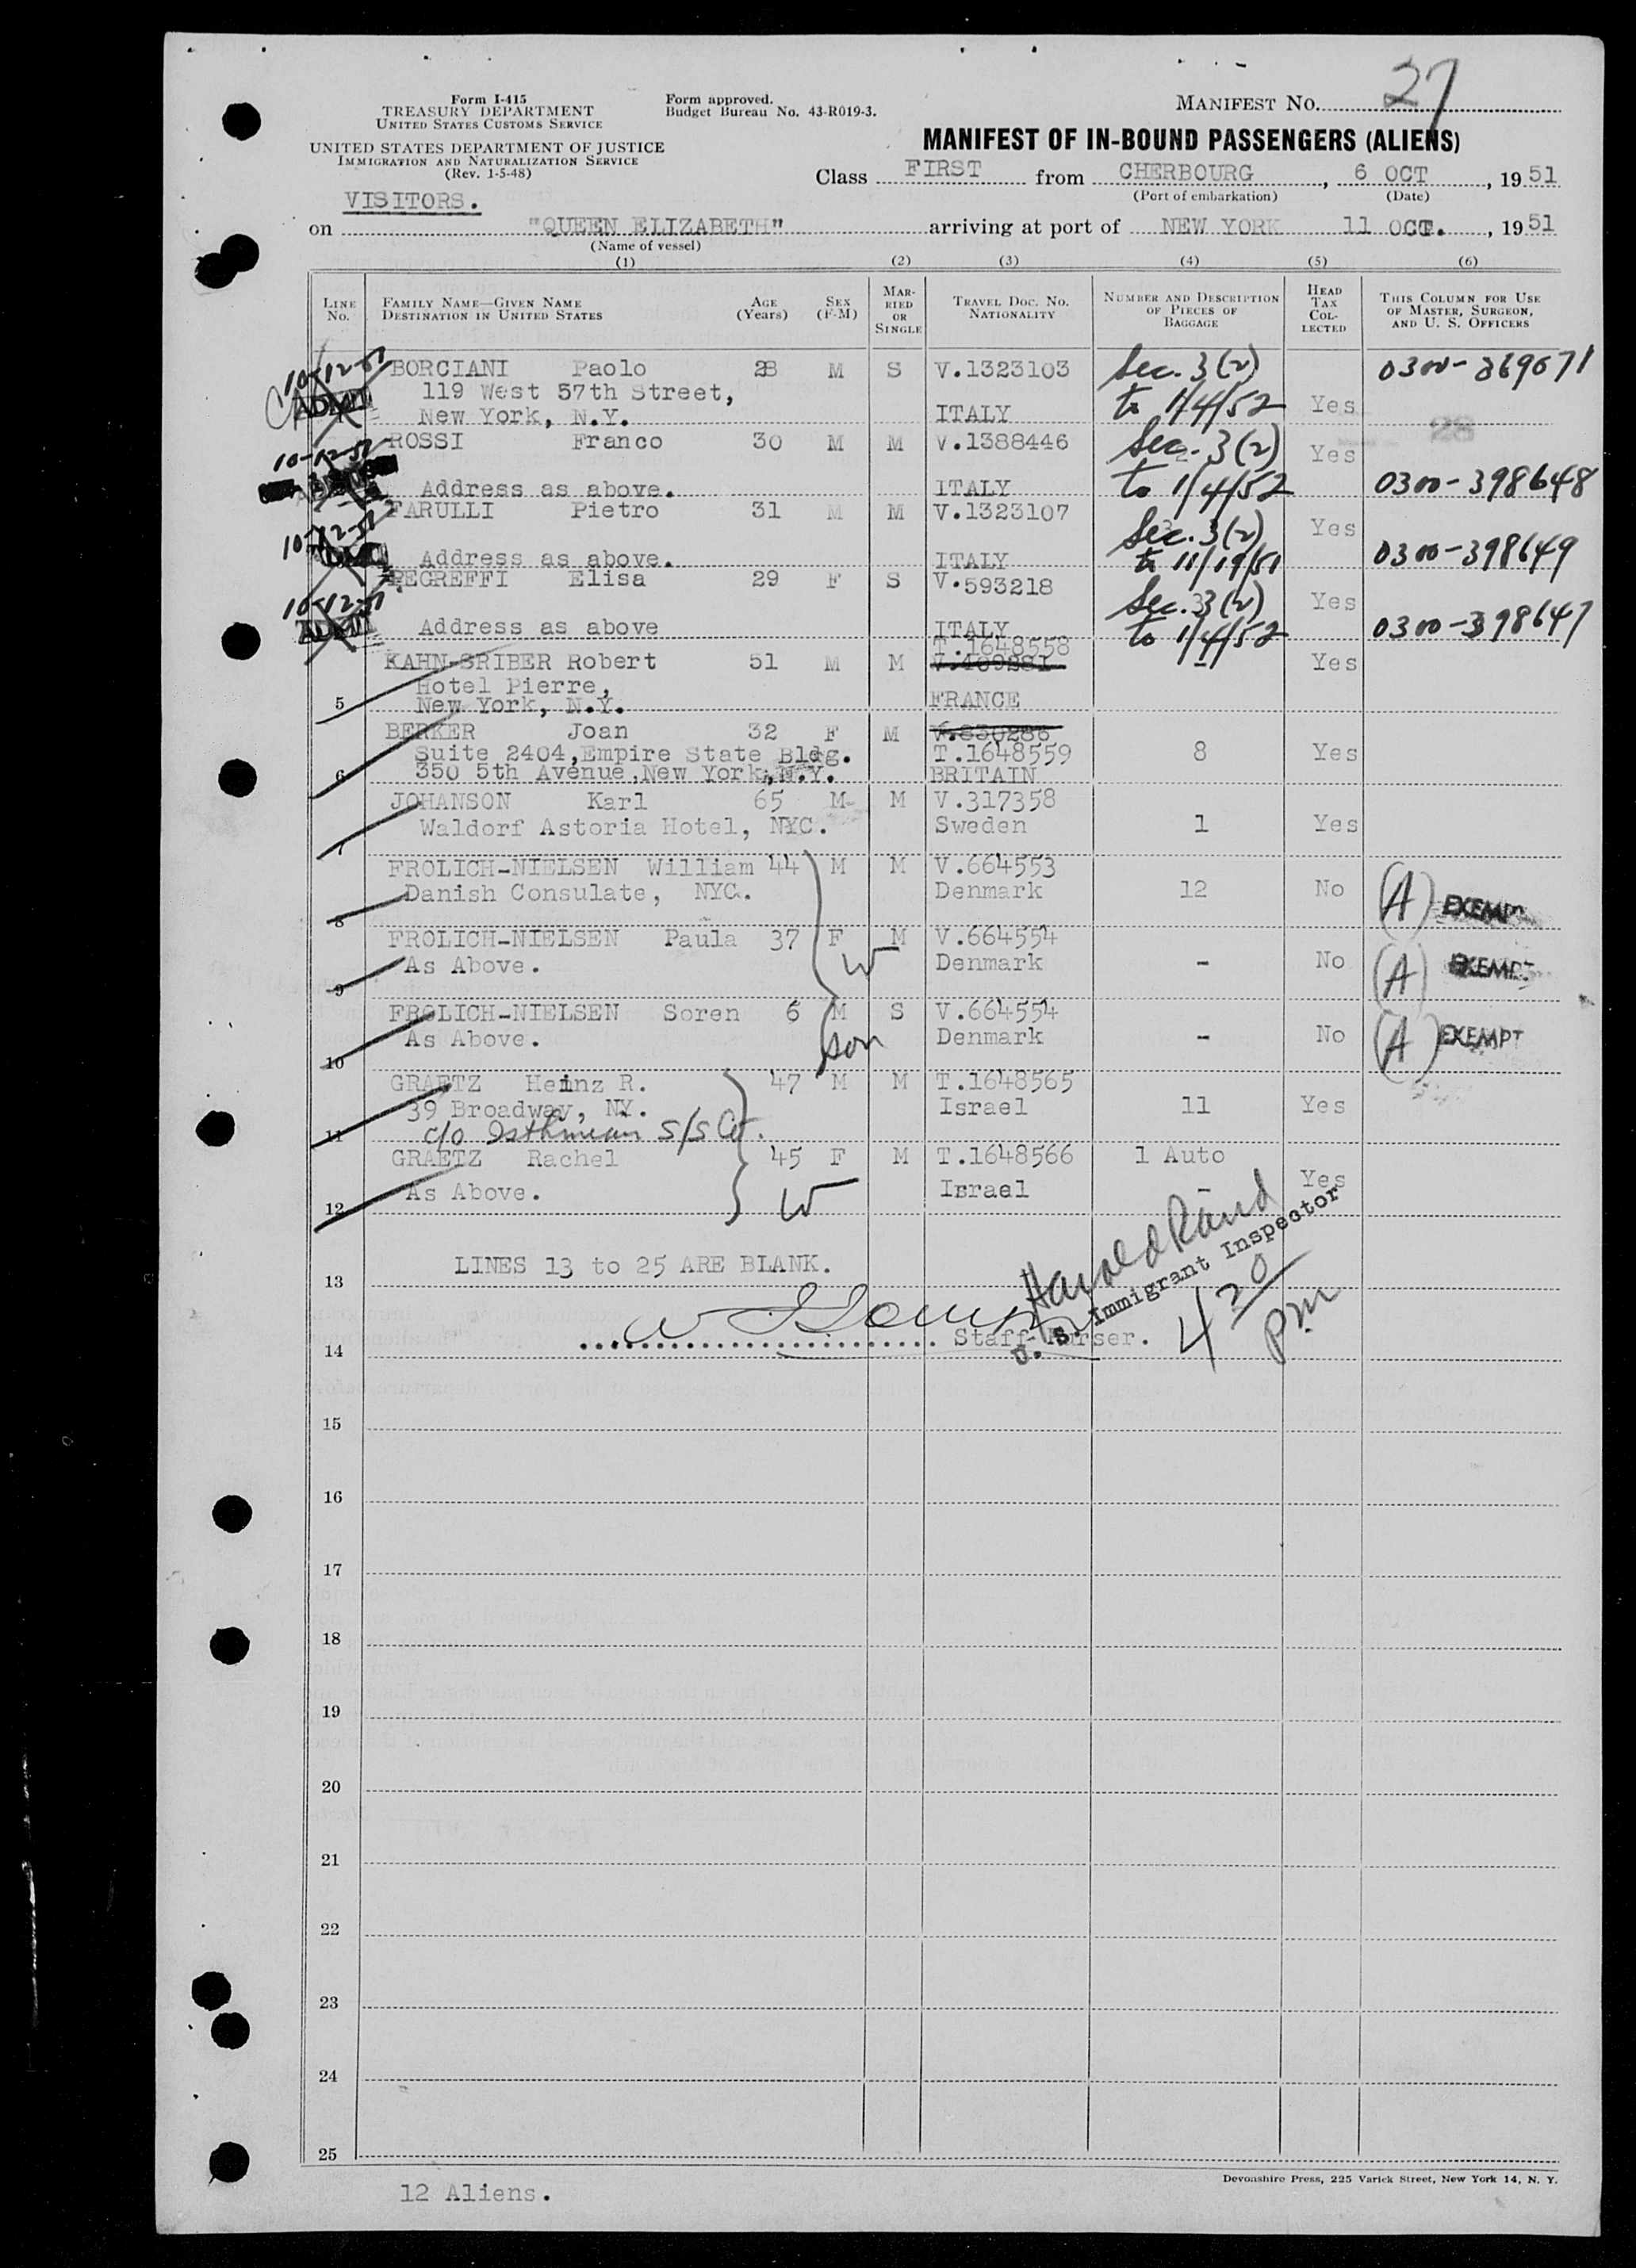 Form I-415
TREASURY DEPARTMENT
UNITED STATES CUSTOMS SERVICE
UNITED STATES DEPARTMENT OF JUSTICE
IMMIGRATION AND NATURALIZATION SERVICE
(Rev. 1-5-48)
Form approved.
Budget Bureau No. 43-R019-3.
MANIFEST NO. 27
MANIFEST OF IN-BOUND PASSENGERS (ALIENS)
Class FIRST from CHERBOURG, 6 OCT, 1951
(Port of embarkation) (Date)
VISITORS.
on "QUEEN ELIZABETH" arriving at port of NEW YORK 11 OCT., 1951
(Name of vessel)
(1) (2) (3) (4) (5) (6)
LINE NO. FAMILY NAME—GIVEN NAME DESTINATION IN UNITED STATES AGE (Years) SEX (F-M) MARRIED OR SINGLE TRAVEL DOC. NO. NATIONALITY NUMBER AND DESCRIPTION OF PIECES OF BAGGAGE HEAD TAX COLLECTED THIS COLUMN FOR USE OF MASTER, SURGEON, AND U. S. OFFICERS
10-12-51 BORCIANI Paolo 28 M S V.1323103 Sec. 3(2) 0300-369671
ADMIT 119 West 57th Street, to 1/4/52 Yes
New York, N.Y. ITALY
10-12-51 ROSSI Franco 30 M M V.1388446 Sec. 3(2) Yes 28
Address as above. ITALY to 1/4/52 0300-398648
10-12-51 FARULLI Pietro 31 M M V.1323107 Sec. 3(2) Yes
Address as above. ITALY to 11/19/51 0300-398649
10-12-51 PEGREFFI Elisa 29 F S V.593218 Sec. 3(2) Yes
ADMIT Address as above ITALY to 1/4/52 0300-398647
T.1648558
KAHN-SRIBER Robert 51 M M V.409281 - Yes
Hotel Pierre,
5 New York, N.Y. FRANCE
BERKER Joan 32 F M V.830286
Suite 2404, Empire State Bldg. T.1648559 8 Yes
6 350 5th Avenue, New York, N.Y. BRITAIN
JOHANSON Karl 65 M M V.317358
Waldorf Astoria Hotel, NYC. Sweden 1 Yes
7
FROLICH-NIELSEN William 44 M M V.664553
Danish Consulate, NYC. Denmark 12 No (A) EXEMPT
8
FROLICH-NIELSEN Paula 37 F M V.664554
As Above. W Denmark - No (A) EXEMPT
9
FROLICH-NIELSEN Soren 6 M S V.664554
As Above. son Denmark - No (A) EXEMPT
10
GRAETZ Heinz R. 47 M M T.1648565
39 Broadway, NY. Israel 11 Yes
11 c/o Isthmian S/S Co.
GRAETZ Rachel 45 F M T.1648566 1 Auto
As Above. W Israel - Yes
12
LINES 13 to 25 ARE BLANK.
13
Harold Rand
U. S. Immigrant Inspector
4 20 pm
Staff Purser.
14
15
16
17
18
19
20
21
22
23
24
25
Devonshire Press, 225 Varick Street, New York 14, N. Y.
12 Aliens.